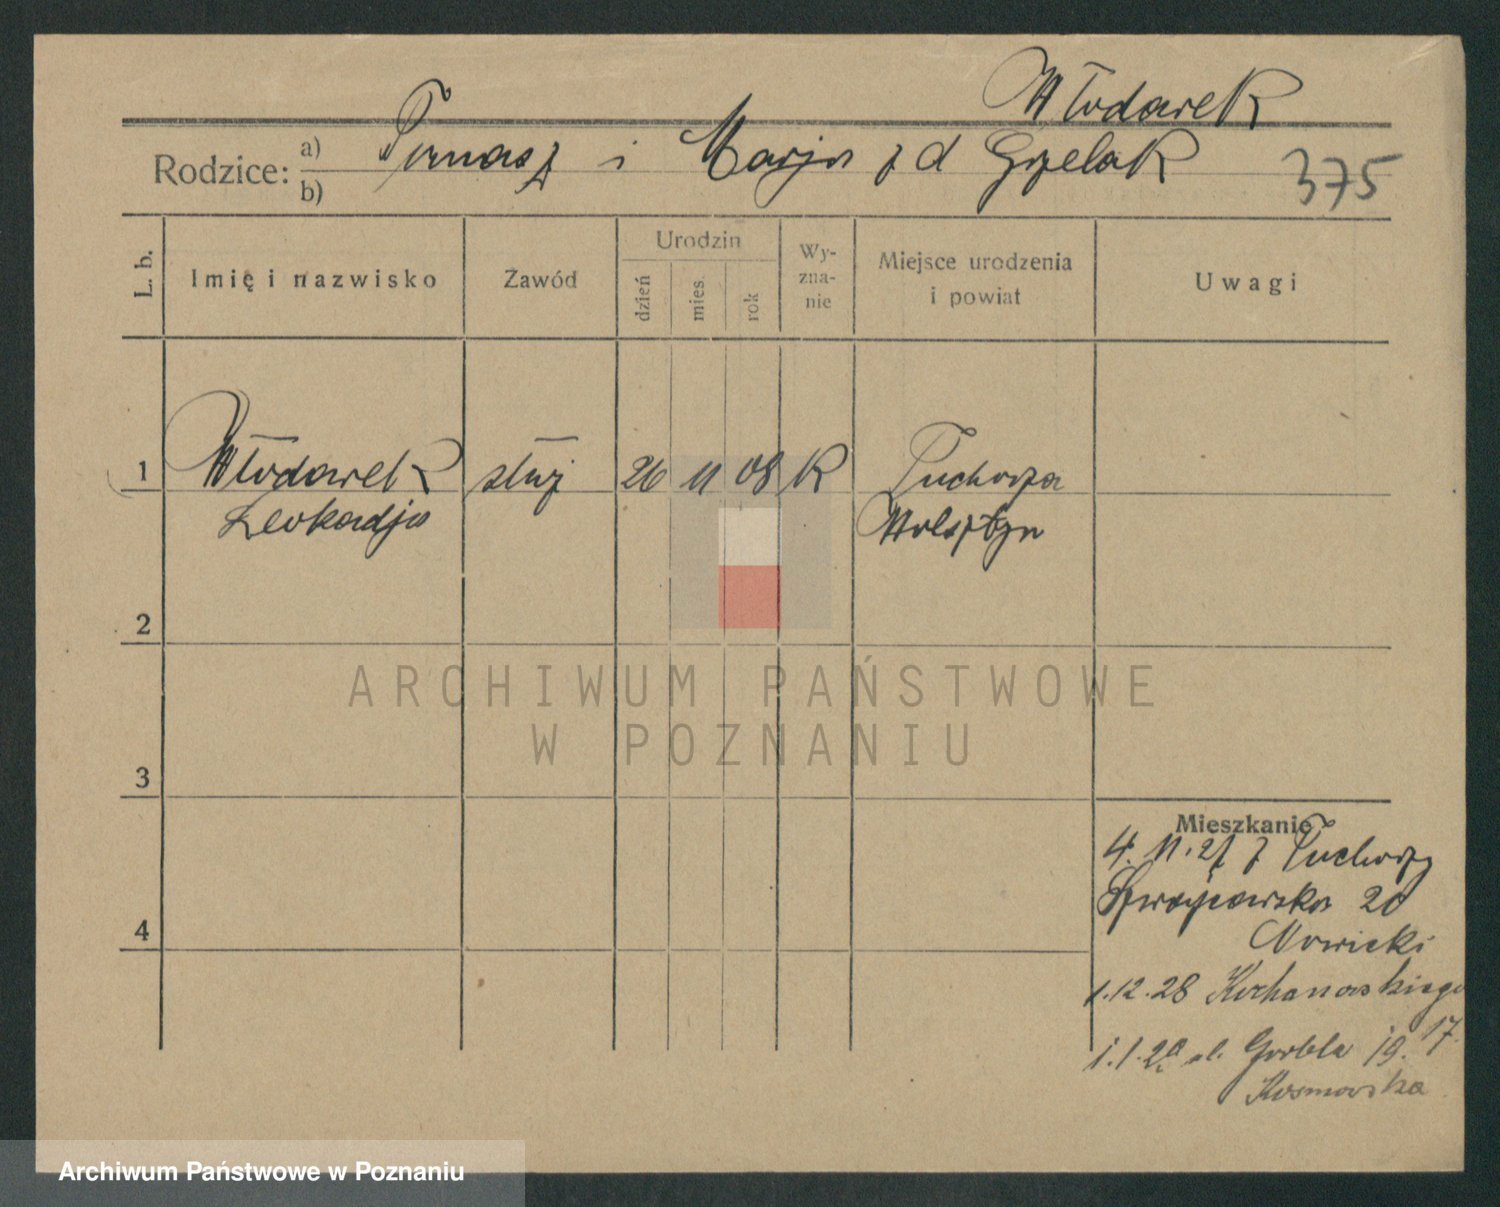 Włodarek
Rodzice: a) Tomasz i Marja z d Grzelak
b)
375
L. b.
Imię i nazwisko
Zawód
Urodzin
dzień
mies
rok
Wy-
zna-
nie
Miejsce urodzenia
i powiat
Uwagi
1 Włodarek służ 26 11 08 K Tuchorza
Leokadja Wolsztyn
2
ARCHIWUM PAŃSTWOWE
W POZNANIU
3
Mieszkanie
4. 11. 27 z Tuchorzy
20
4
Nowicki
1.12.28 Kochanowskiego
17.
1.1.29 ul. 19.
Kosmowska
Archiwum Państwowe w Poznaniu